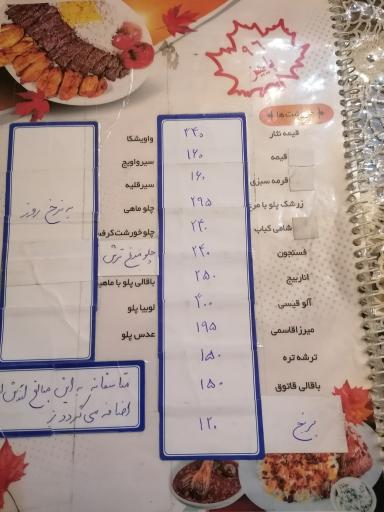 ۹۶
پاییز
خورشت ها
قیمه نثار
۲۴۰
قیمه
۱۶۰
قرمه سبزی
۱۶۰
زرشک پلو با مرغ
۲۹۵
شامی کباب
۲۴۰
فسنجون
۲۴۰
اناربیج
۲۵۰
آلو قیسی
۴۰۰
میرزاقاسمی
۱۹۵
ترشه تره
۱۵۰
باقالی قاتوق
۱۵۰
برنج
۱۲۰
واویشکا
سیرواویج
سیرقلیه
چلو ماهی
چلوخورشت کرفس
چلو مرغ ترش
باقالی پلو با ماهیچه
لوبیا پلو
عدس پلو
به نرخ روز
متاسفانه به این مبالغ
اضافه می گردد